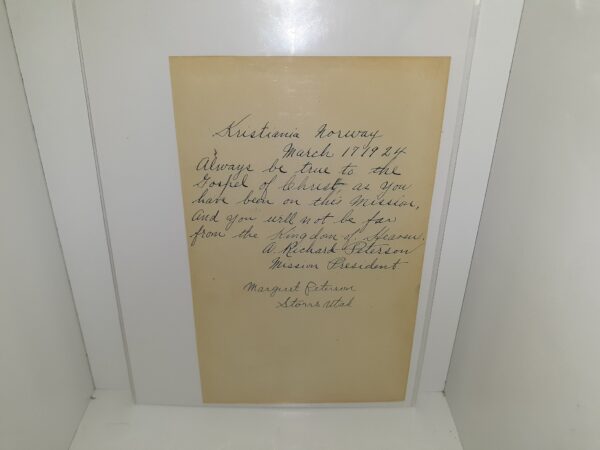 Kristiania Norway
March 17 1924
Always be true to the
Gospel of Christ, as you
have been on this Mission,
and you will not be far
from the Kingdom of Heaven.
A. Richard Peterson
Mission President
Margaret Peterson
Storrs Utah